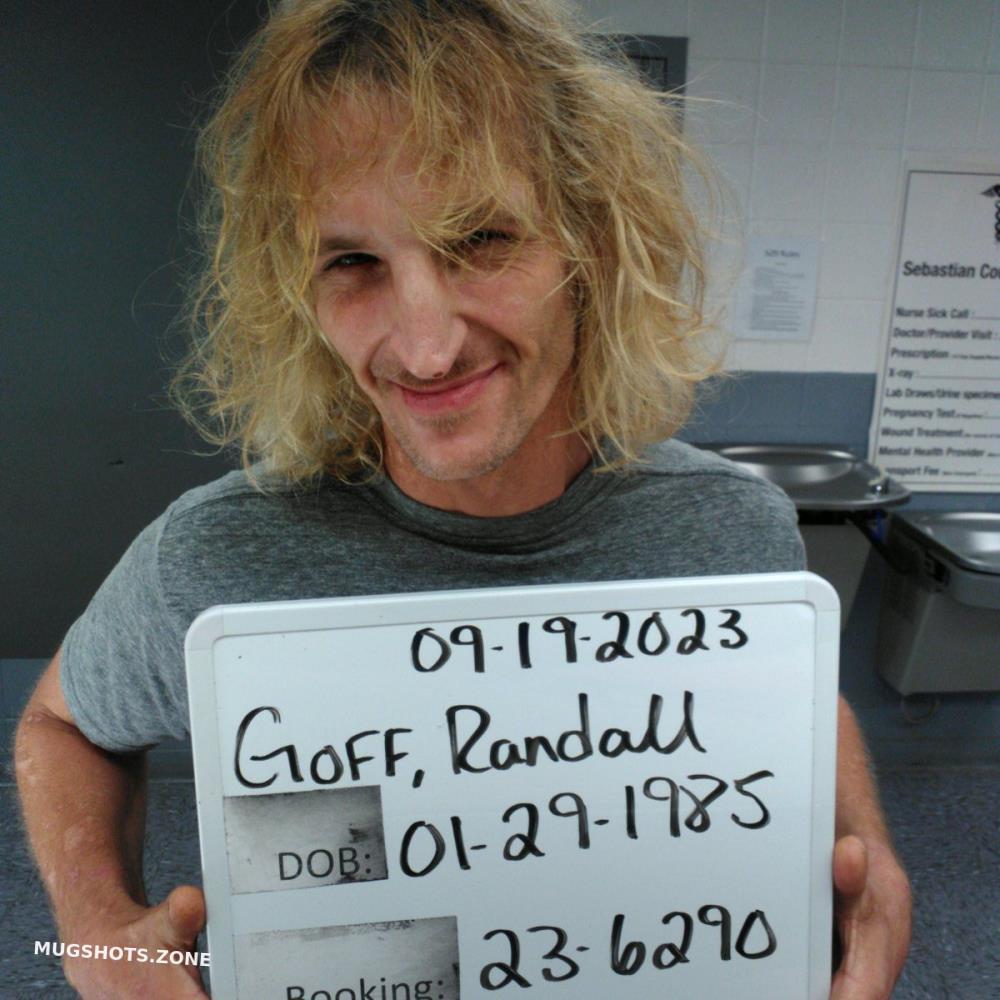 S.O. Rules
Sebastian Co
Nurse Sick Call :
Doctor/Provider Visit :
Prescription
X-ray :
Lab Draws/Urine specime
Pregnancy Test
Wound Treatment
Mental Health Provider
nsport Fee
09-19-2023
GOFF, Randall
DOB: 01-29-1985
Booking: 23-6290
MUGSHOTS.ZONE